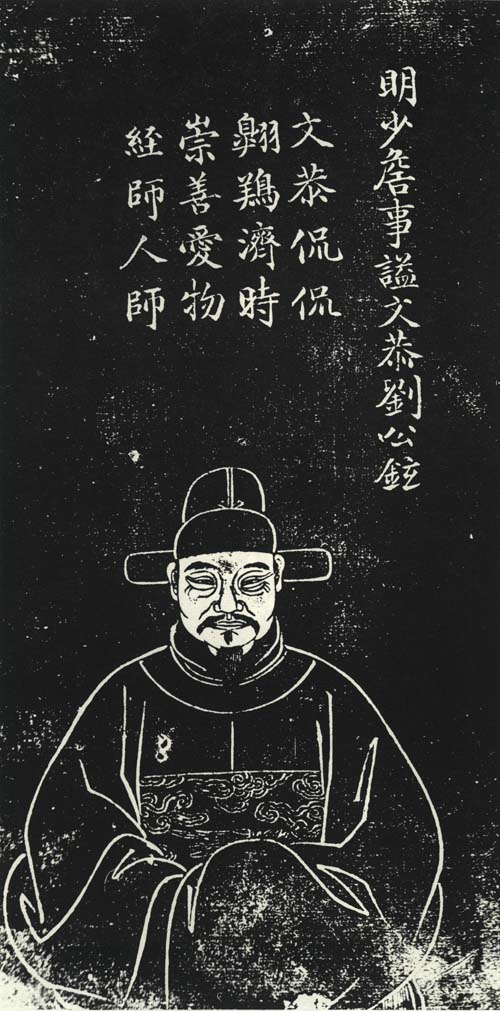 明少詹事謚文恭劉公鉉
文恭侃侃
翱濟時
崇善愛物
經師人師